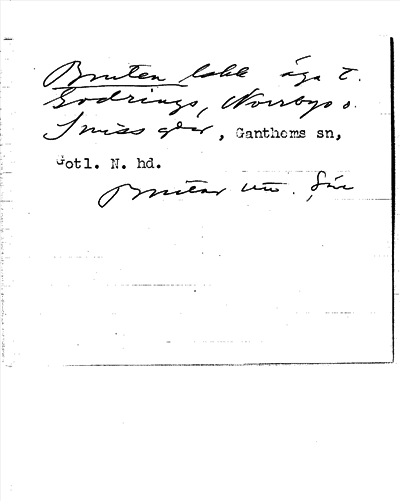 Bruten lokl äga t.
Godrings, Norrbys o.
Smiss gdr, Ganthems sn,
Gotl. N. hd.
Brutar